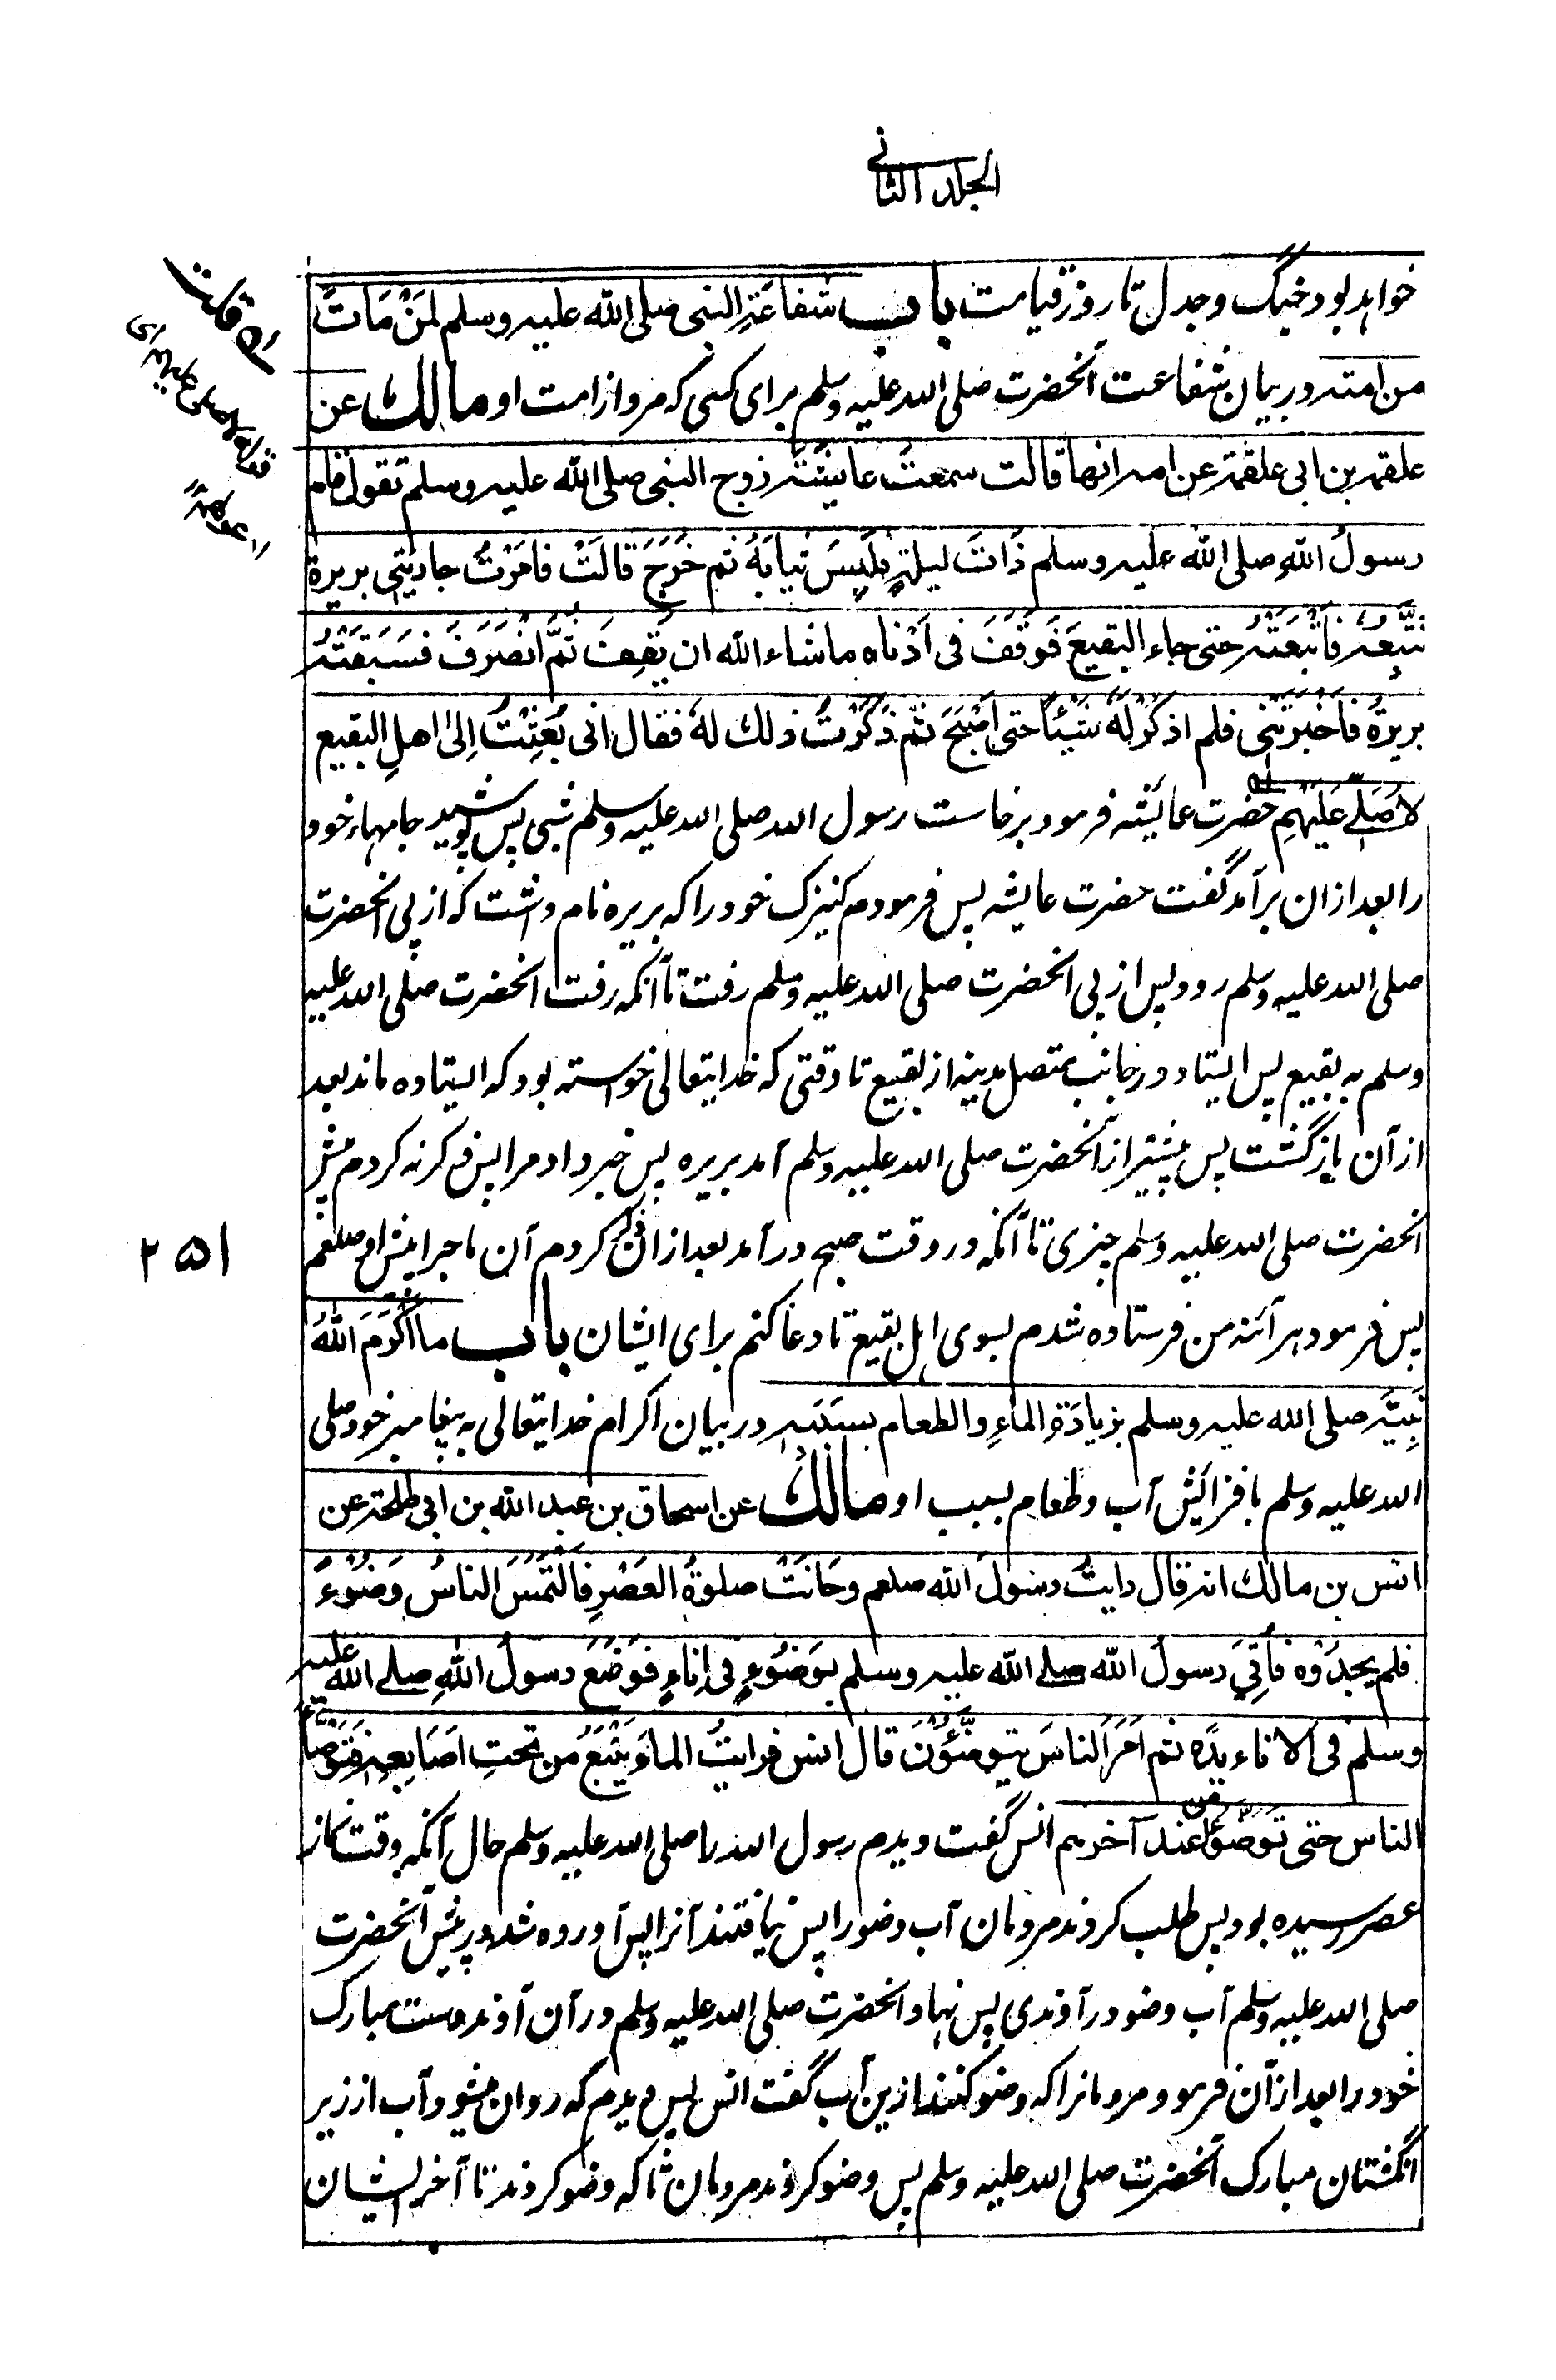 الجلد الثانی
خواهد بود جنگ و جدل تا روز قیامت باب شفاعَةِ النبی صلی الله علیه وسلم لمَنْ مَاتَ
من امته در بیان شفاعت آنحضرت صلی الله علیه وسلم برای کسی که مرد از امت او مالك عن
علقمة بن ابی علقمة عن امه انها قالت سمعتُ عایشة زوج النبی صلی الله علیه وسلم تقول قام
رسولُ اللهِ صلی الله علیه وسلم ذَاتَ لیلةٍ فلَبِسَ ثیابَهُ ثم خَرَجَ قالَتْ فامَرْتُ جاریَتِی بریرة
تَتَّبِعُه فاتَّبَعَتْهُ حتی جاء البقیعَ فَوَقَفَ فی اَدْناه ماشاء الله ان یَقِفَ ثُمَّ انْصَرَفَ فسَبَقَتْه
بریرةُ فاَخْبَرَتْنِی فلم اذکُرْ لَهُ شَیْئًا حتی اَصْبَحَ ثم ذَکَرْتُ ذلك لهٗ فقال انی بُعِثْتُ اِلیٰ اهلِ البقیع
لاُصَلِّےَ عَلَیْهِم حضرت عایشه فرمود برخاست رسول الله صلی الله علیه وسلم شبی پس پوشید جامهاء خود
را بعد ازان برآمد گفت حضرت عایشه پس فرمودم کنیزک خود را که بریره نام داشت که از پی آنحضرت
صلی الله علیه وسلم رود پس از پی آنحضرت صلی الله علیه وسلم رفت تا آنکه رفت آنحضرت صلی الله علیه
وسلم به بقیع پس ایستاد در جانب متصل مدینه از بقیع تا وقتی که خدایتعالی خواسته بود که ایستاده ماند بعد
از آن بازگشت پس پیشتر از آنحضرت صلی الله علیه وسلم آمد بریره پس خبر داد مرا پس ذکر نه کردم پیش
آنحضرت صلی الله علیه وسلم چیزی تا آنکه در وقت صبح درآمد بعد ازان ذکر کردم آن ماجرا پیش او صلعم
پس فرمود هر آئنه من فرستاده شدم بسوی اهل بقیع تا دعا کنم برای ایشان باب ما اَکْرَمَ اللهُ
نَبِیَّه صلی الله علیه وسلم بزیادَةِ الماءِ والطعام بسبَبِه در بیان اکرام خدایتعالی به پیغامبر خود صلی
الله علیه وسلم بافزایش آب وطعام بسبب او مالكٌ عن اسحاق بن عبد الله بن ابی طلحة عن
انس بن مالك انه قال رایتُ رسولَ الله صلعم وحَانَتْ صلوةُ العَصْرِ فَالْتَمَسَ الناسُ وَضُوْءً
فلم یجدُوْه فاُتِیَ رسولُ الله صلے الله علیه وسلم بوَضُوْءٍ فی اِناءٍ فوَضَعَ رسولُ اللهِ صلے الله علیه
وسلم فی الاناء یدَه ثم اَمَرَ الناسَ یتوضَّؤُنَ قال انس فرایتُ الماءَ یَنْبَعُ من تحتِ اَصَابِعِهِ فَتَوَضَّأَ
الناس حتی تَوَضَّؤُا من عند آخرهم انس گفت دیدم رسول الله را صلی الله علیه وسلم حال آنکه وقت نماز
عصر رسیده بود پس طلب کردند مردمان آب وضو را پس نیافتند آنرا پس آورده شد در پیش آنحضرت
صلی الله علیه وسلم آب وضو در آوندی پس نهاد آنحضرت صلی الله علیه وسلم در آن آوند دست مبارک
خود را بعد از آن فرمود مردمانرا که وضو کنند ازین آب گفت انس پس دیدم که روان میشود آب از زیر
انگشتان مبارک آنحضرت صلی الله علیه وسلم پس وضو کردند مردمان تا که وضو کردند تا آخر ایشان
۲۵۱